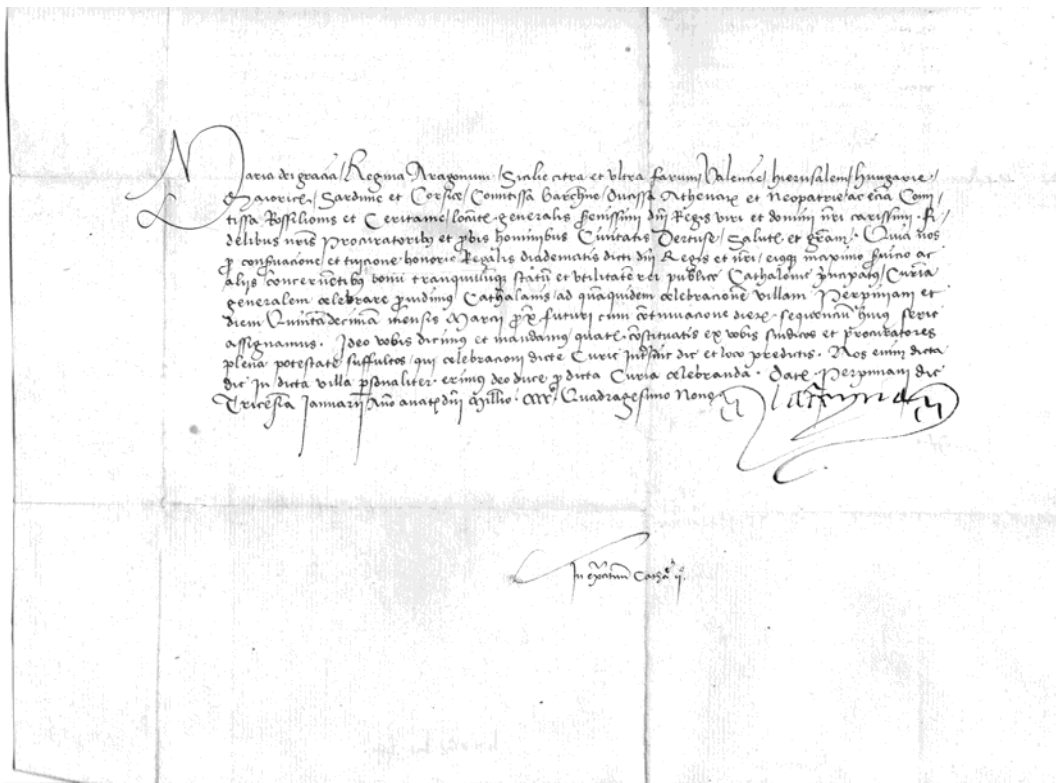 Maria dei gracia / Regina Aragonum / Sicilie citra et ultra farum / Valencie / hierusalem / hungarie /
Maiorice / Sardinie et Corsice / Comitissa Barchne / Ducissa Athenarum et Neopatrie ac etia Comi-
tissa Rossilionis et Ceritanie / locute generalis Serenissimi dni Regis viri et domini nri carissimi . fi-
delibus nris Procuratoribus et probis hominibus Civitatis Dertuse / Salute et gram . Quia nos
pro conservacione et tuicione honoris Regalis diadematis dicti dni Regis et nri / eiusque maximo servicio ac
aliis concernentibus bonu tranquillumque statu et utilitate rei publice Cathalonie principatus / Curia
generalem celebrare providimus Cathalanis / ad quaquidem celebracione villam Perpiniani et
diem Quintadecima mensis Marcii prox futuri cum continuacione dierum sequencium huius serie
assignamus . Ideo vobis dicimus et mandamus quate constituatis ex vobis sindicos et procuratores
plena potestate suffultos / qui celebracioni dicte Curie die et loco predictis . Nos enim dicta
die In dicta villa personaliter erimus deo duce pro dicta Curia celebranda . Date Perpiniani die
Tricesima Januarii Año a natte dni Millio . CCCC . Quadragesimo Nono . La Reyna
In Cathe ijº.